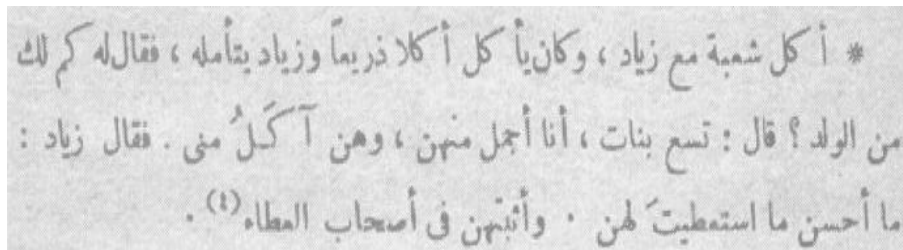 * أكل شعبة مع زياد ، وكان يأكل أكلا ذريعاً وزياد يتأمله ، فقال له كم لك
من الولد ؟ قال : تسع بنات ، أنا أجمل منهن ، وهن آكَلُ منى . فقال زياد :
ما أحسن ما استعطيتَ لهن . وأثبتهن فى أصحاب العطاء(٤) .